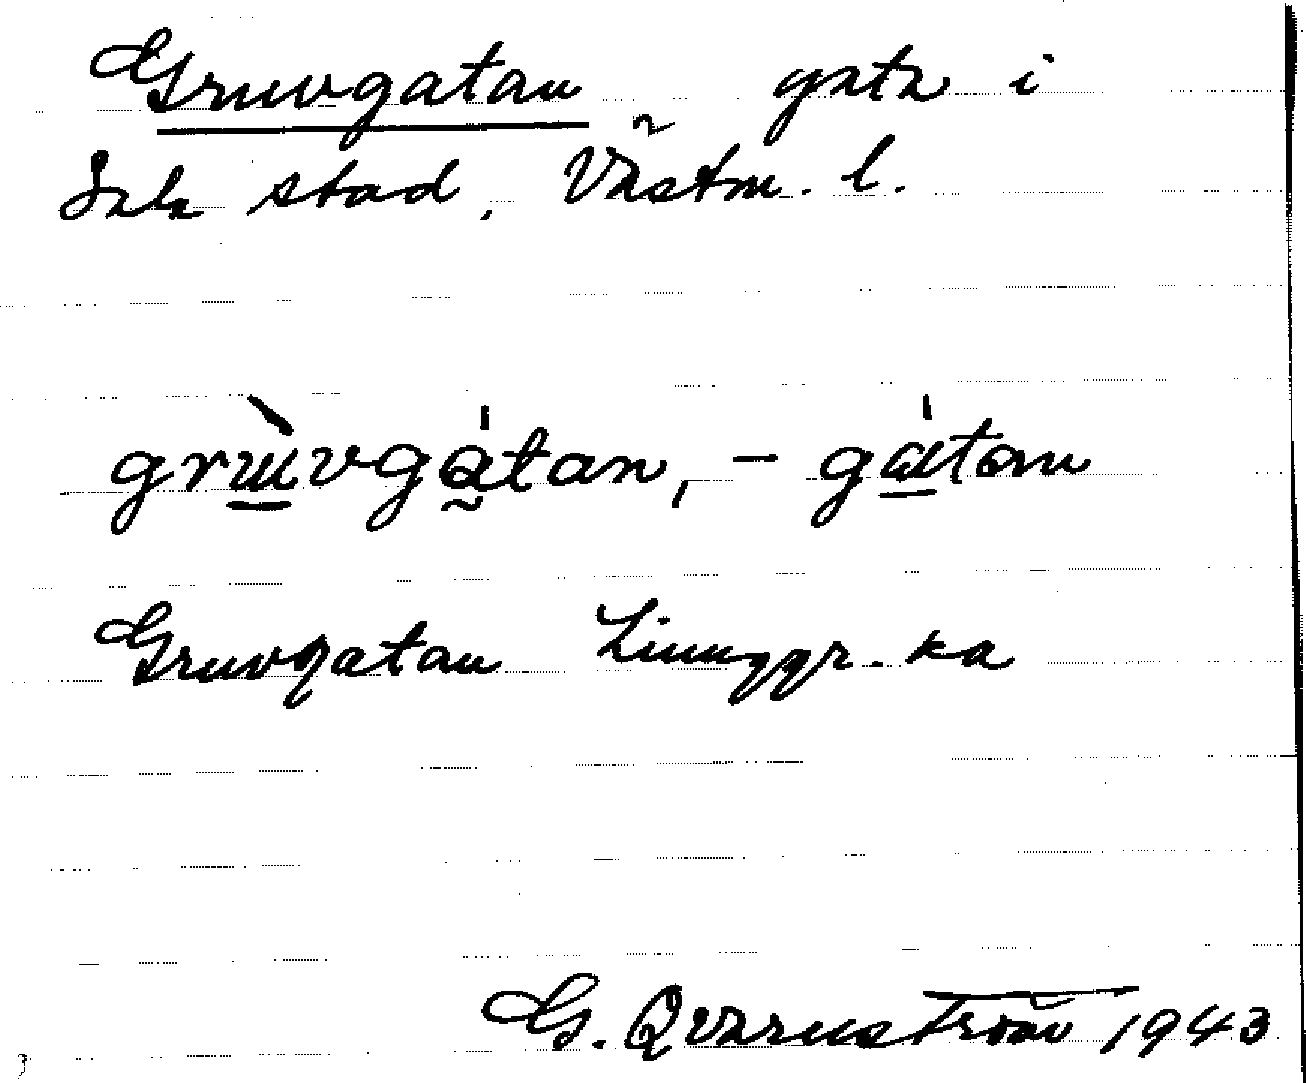 Gruvgatan gata i
Sala stad, Västm. l.
grùvgátan, - gátan
Gruvgatan
G. Qvarnström 1943